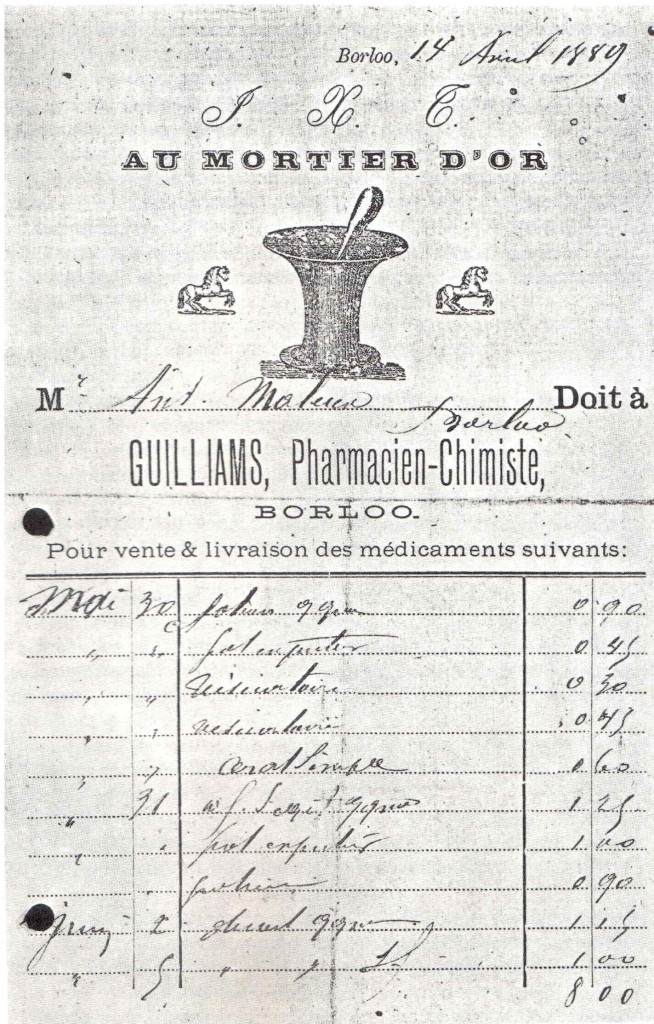 Borloo, 14 Avril 1889
J. X. C.
AU MORTIER D'OR
Mr Ant. Borloo Doit à
GUILLIAMS, Pharmacien-Chimiste,
BORLOO.
Pour vente & livraison des médicaments suivants:
Mai 30 potion 0 90
" " 0 45
" " vésicatoire 0 30
" " vésicatoire 0 45
" " cerat simple 0 60
" 31 1 25
" " 1 00
" " potion 0 90
Juin 2 1 15
" 5 " " 1 00
8 00